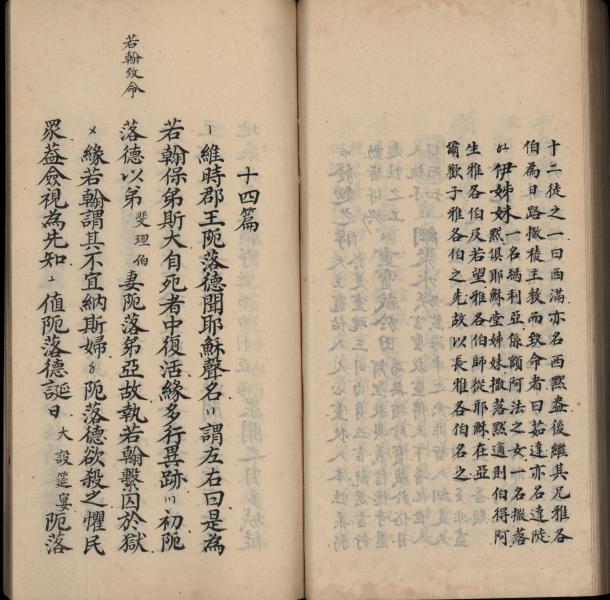 十二徒之一曰西滿亦名西默盎後繼其兄雅各
伯為日路撒稜主教而致命者曰茹達亦名達陡
伊姊妹一名瑪利亞係額阿法之女一名撒落
默俱耶穌堂姊妹撒落默適則伯得阿
生雅各伯及若望雅各伯師從耶穌在亞
爾歡子雅各伯之先故以長雅各伯名之
若翰致命
十四篇
維時郡王阨落德聞耶穌聲名謂左右曰是為
若翰保弟斯大自死者中復活緣多行異跡初阨
落德以弟斐理伯妻阨落弟亞故執若翰繫囚於獄
緣若翰謂其不宜納斯婦阨落德欲殺之懼民
眾葢僉視為先知值阨落德誕日大設筵宴阨落